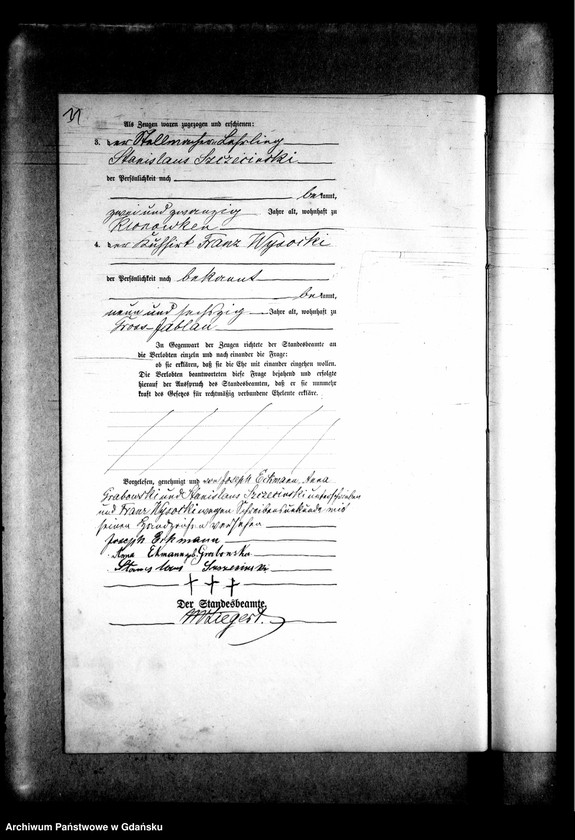 Als Zeugen waren zugezogen und erschienen:
3. der Stellmacher Lehrling
Stanislaus Szczecinski
der Persönlichkeit nach
bekannt,
zwei und zwanzig Jahre alt, wohnhaft zu
Klonowken
4. der Kuhhirt Franz Wysocki
der Persönlichkeit nach bekannt
bekannt,
neun und sechszig Jahre alt, wohnhaft zu
Gross-Jablau
In Gegenwart der Zeugen richtete der Standesbeamte an
die Verlobten einzeln und nach einander die Frage:
ob sie erklären, daß sie die Ehe mit einander eingehen wollen.
Die Verlobten beantworteten diese Frage bejahend und erfolgte
hierauf der Ausspruch des Standesbeamten, daß er sie nunmehr
kraft des Gesetzes für rechtmäßig verbundene Eheleute erkläre.
Vorgelesen, genehmigt und von Joseph Erkmann Anna
Grabowski und Stanislaus Szczecinski unterschrieben
und Franz Wysocki wegen Schreibensunkunde mit
seinen Handzeichen versehen
Joseph Erkmann
Anna Erkmann geb Grabowska
Stanislaus
+ + +
Der Standesbeamte.